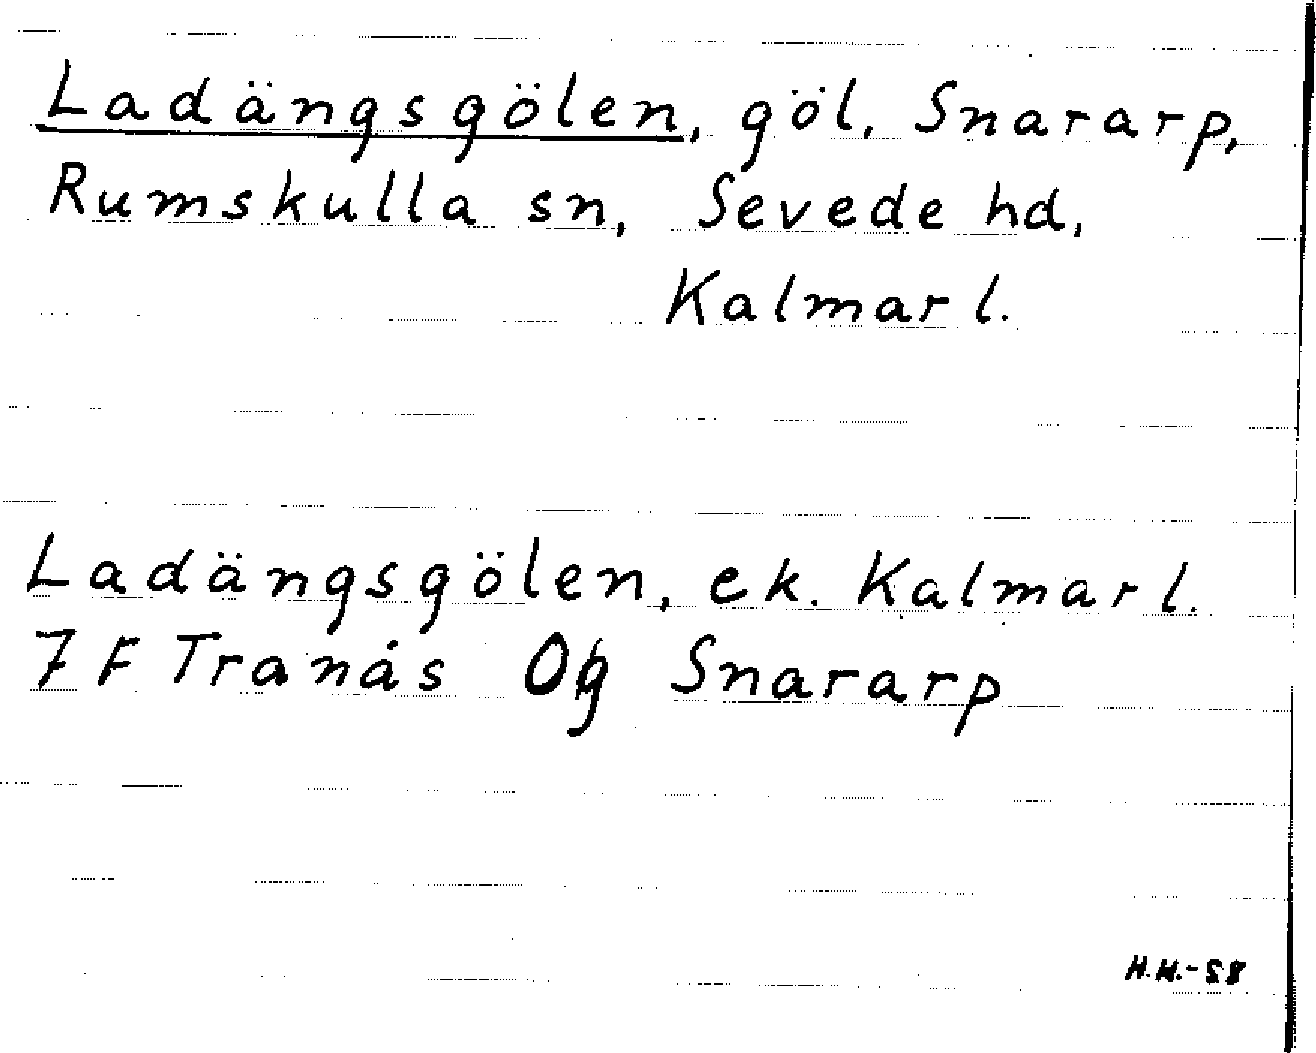 Ladängsgölen, göl, Snararp,
Rumskulla sn, Sevede hd,
Kalmar l.
Ladängsgölen, ek. Kalmar l.
7 F Tranås Og Snararp
H.H.-58